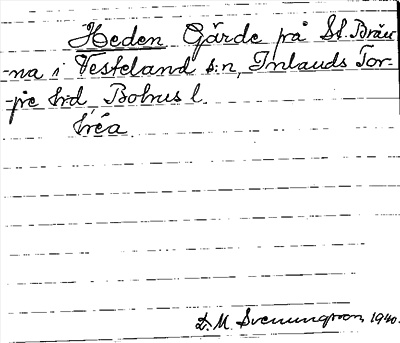 Heden Gärde på St. Brän-
na i Vesteland s:n, Inlands Tor-
pe hrd, Bohus l.
D. M. Svenungsson, 1940.